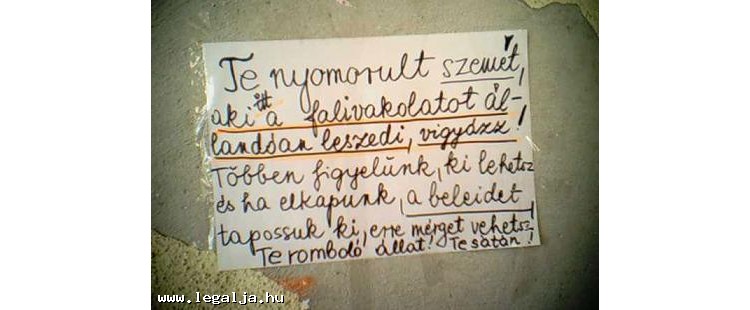 Te nyomorult szemét,
aki itt a falivakolatot ál-
landóan leszedi, vigyázz!
Többen figyelünk, ki lehetsz
és ha elkapunk, a beleidet
tapossuk ki, erre mérget vehetsz,
Te romboló állat! Te sátán!
www.legalja.hu